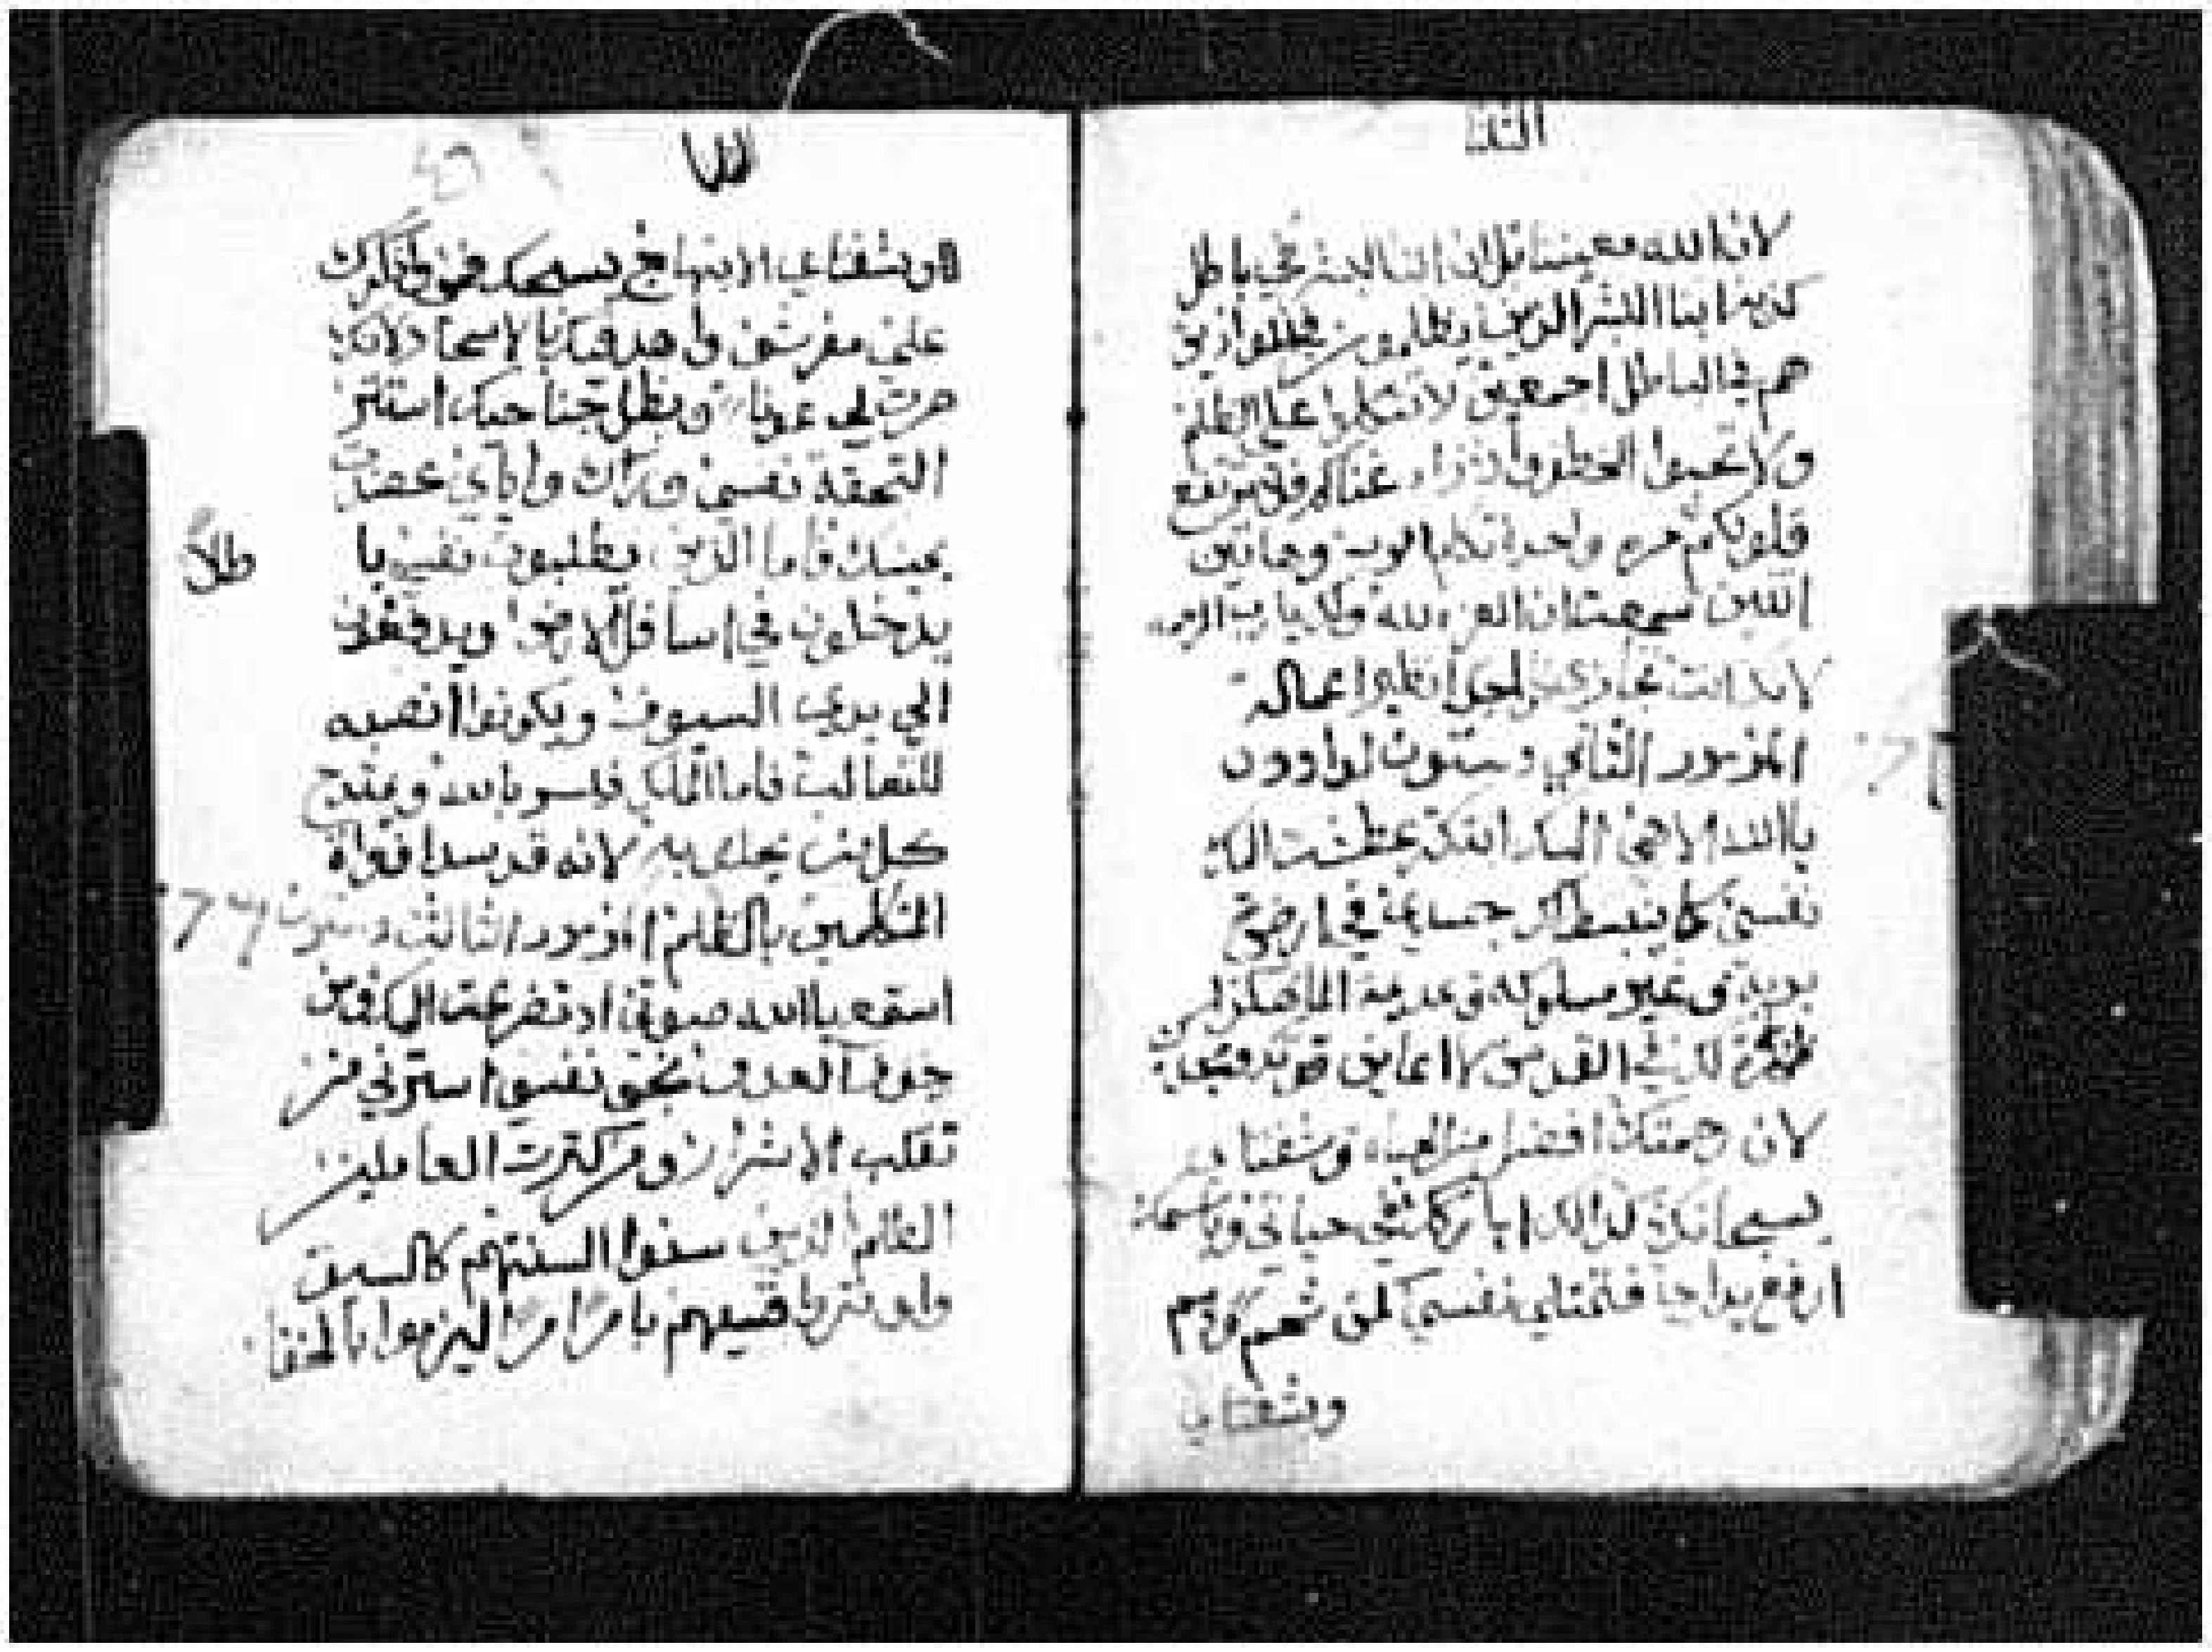 لان الله معيننا بل ان ابنا البشر هي باطل
كذبه ابنا البشر الذين يظلمون
هم في الباطل اجمعين لا تتكلوا على الظلم
ولا تحبوا الخطف وان زاد غناكم فلا ترتفع
قلوبكم مره واحده تكلم الرب وهاتين
اثنين سمعت ان العزه لله ولك يا رب الرحمه
لانك انت تجازي كل احد نظير اعماله
المزمور الثاني وستون لداوود
يا الله الاهي اليك ابتكر عطشت اليك
نفسي لكي ينبسط لك جسدي في ارض
بريه وغير مسلوكه وعديمة الما هكذا
ظهرة لك في القدس لاعاين قوتك ومجدك
لان رحمتك افضل من الحياه وشفتاي
يسبحانك كذلك اباركك في حياتي وباسمك
ارفع يداي فتمتلي نفسي كمن شحم ودسم
وبشفتاي
وبشفتاي الابتهاج يسبحك فمي اذكرتك
على مفرشي وا بالاسحار لانك
صرت لي عونا وبظل جناحيك استتر
التحقة نفسي وراك واياي عضدت
يمينك فاما الذين يطلبون نفسي با
طلاً
يدخلون في اسافل الارض ويدفعون
الى يدي السيوف ويكونوا انصبه
للثعالب فاما الملك فيسر بالله ويمتدح
كل من يحلف به لانه قد سد افواه
المتكلمين بالظلم المزمور الثالث وستون
استمع يا الله صوتي اذ تضرعت اليك من
خوف العدو نجي نفسي استرني من
تقلب الاشرار ومن كثرت العاملين
الظلم الذين سنوا السنتهم كالسيف
واوتروا قسيهم بامرا مرا ليرموا بالخفا